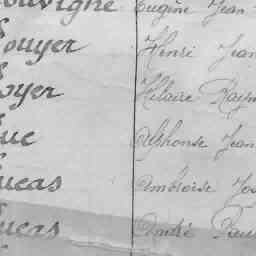 ouvigné Eugène Jean
ouyer Henri Jean
oyer Hilaire Raym
uc Alphonse Jean
ucas Ambroise Jos
ucas André Paul